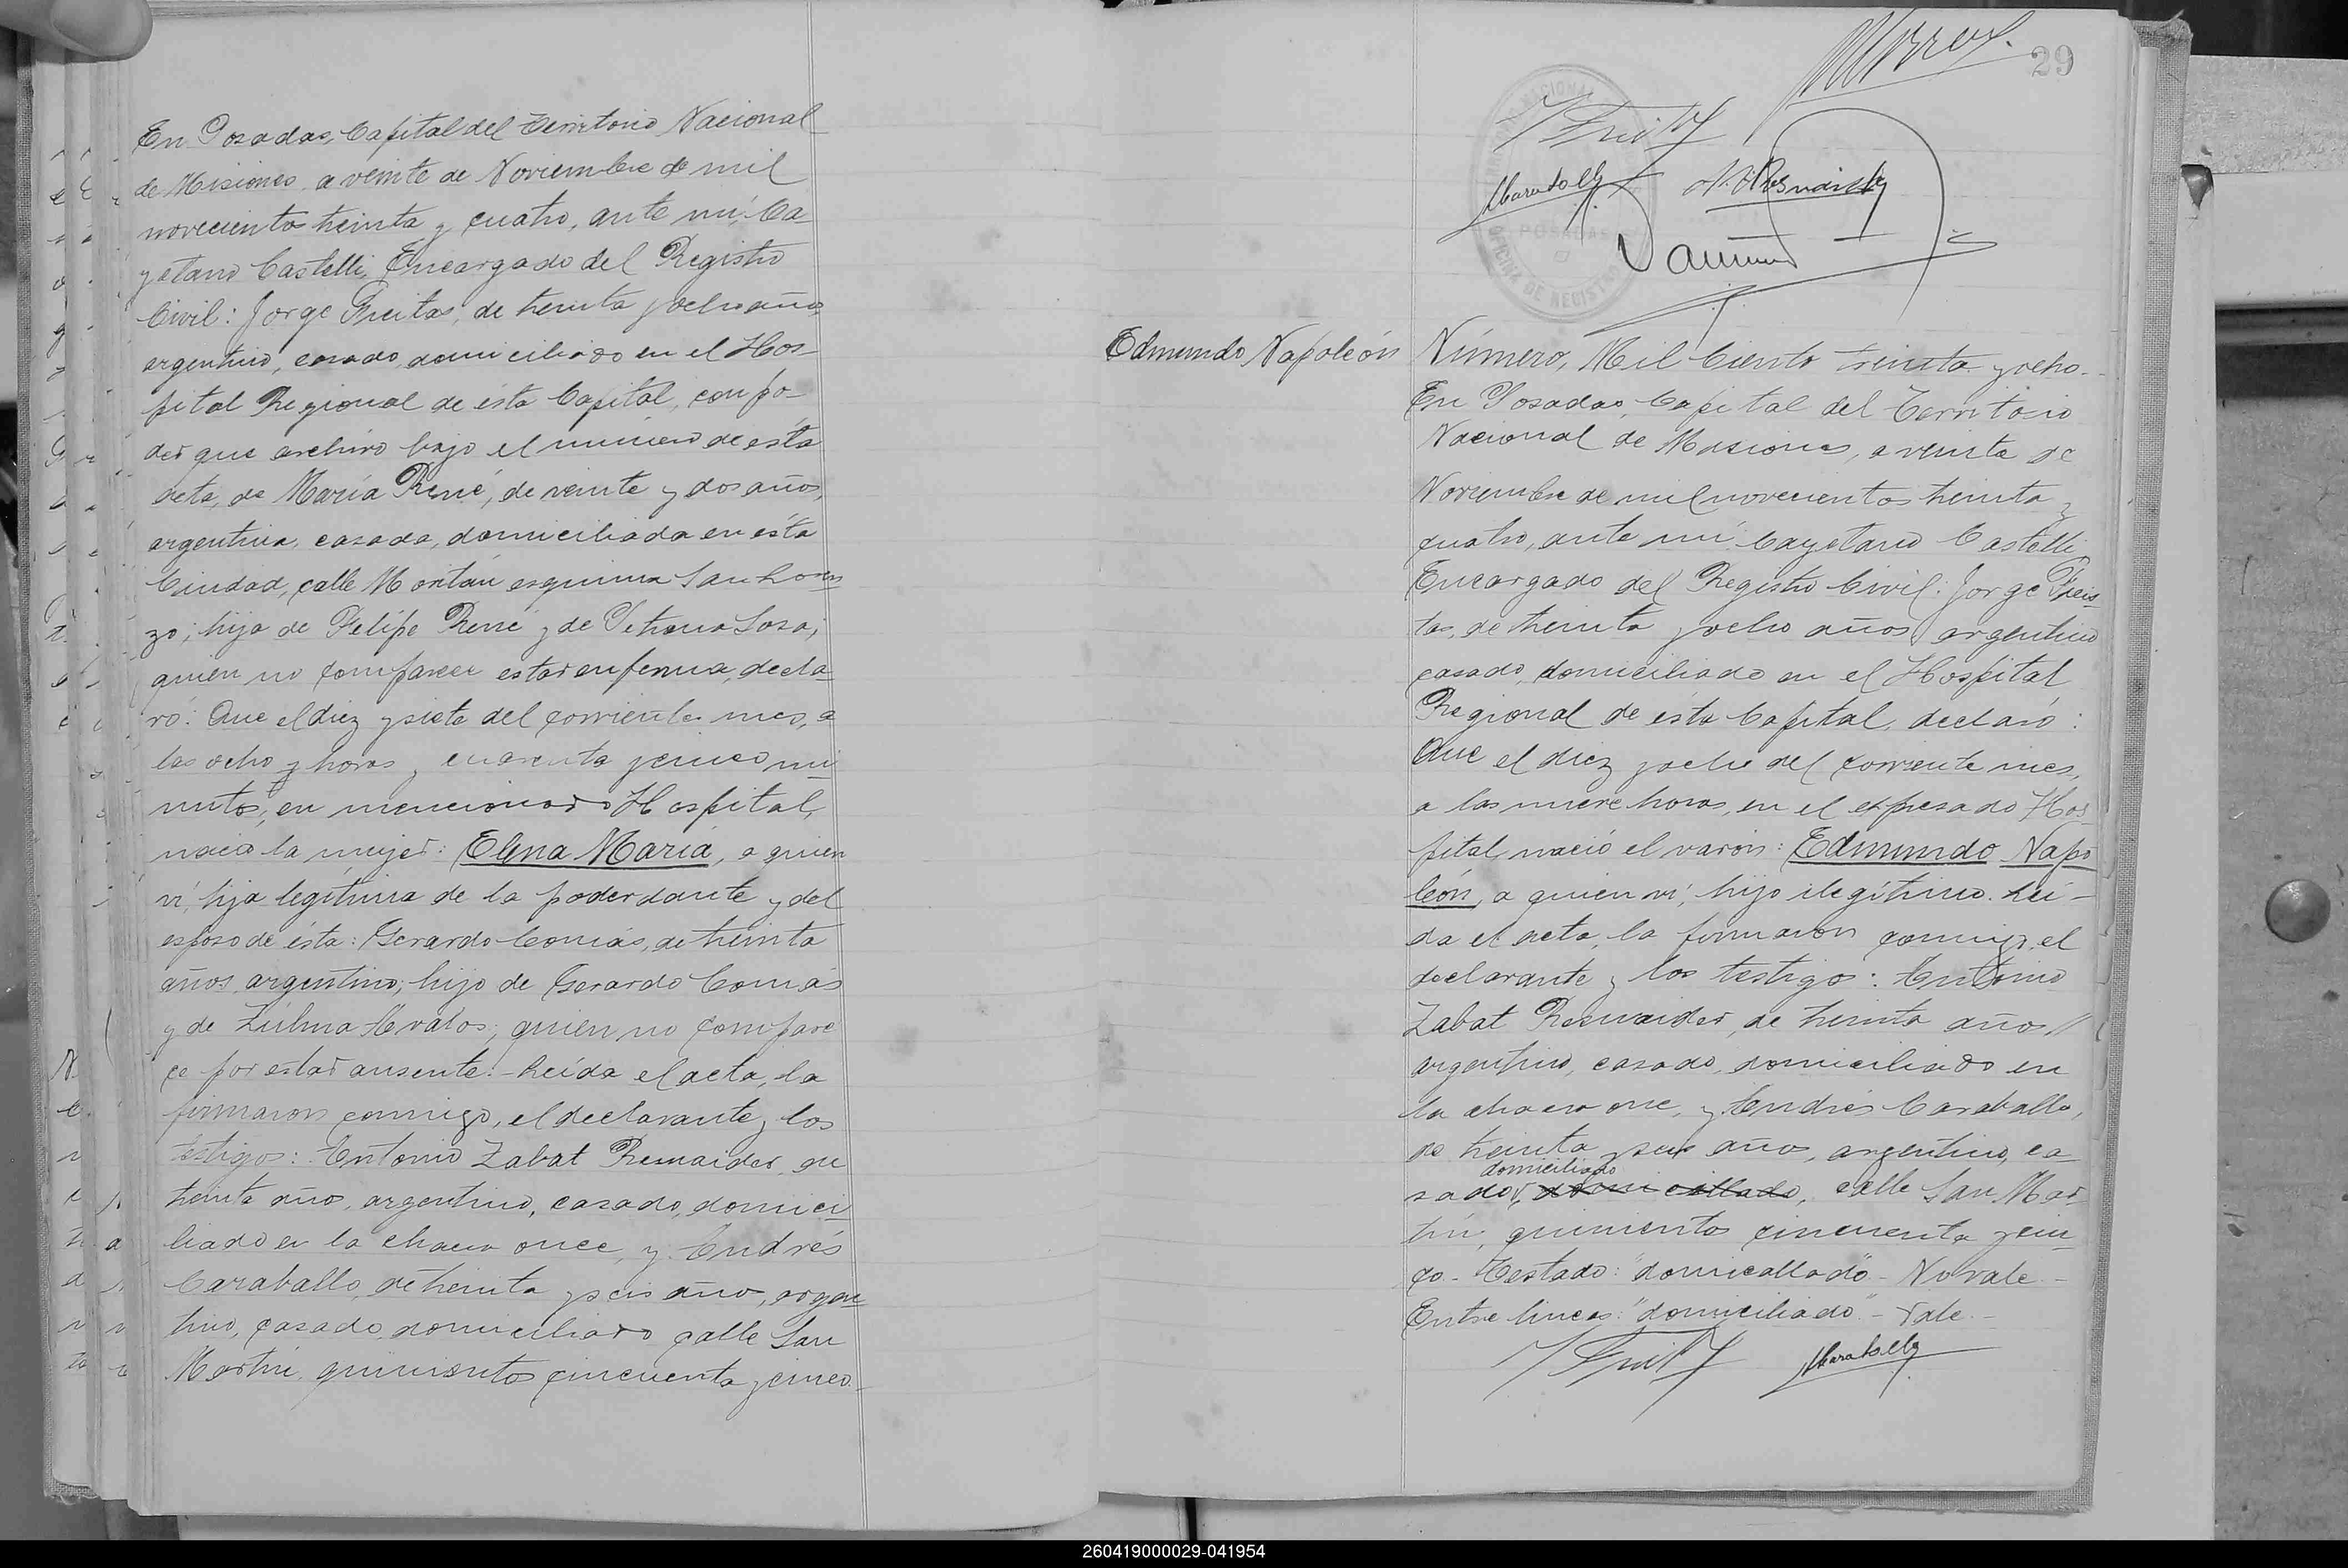 En Posadas, Capital del Territorio Nacional
de Misiones, a veinte de Noviembre de mil
novecientos treinta y cuatro, ante mí, Ca-
yetano Castelli, Encargado del Registro
Civil: Jorge Freitas, de treinta y ocho años,
argentino, casado, domiciliado en el Hos-
pital Regional de ésta Capital, con po-
der que archivo bajo el número de ésta
acta, de María René, de veinte y dos años,
argentina, casada, domiciliada en ésta
Ciudad, calle esquina San Loren
zo; hija de Felipe René y de Petrona Sosa;
quien no comparece estar enferma, decla-
ró: Que el diez y siete del corriente mes, a
las ocho y horas y cuarenta y cinco mi-
nutos, en mencionado Hospital,
nació la mujer: Elena María, a quien
ví, hija legítima de la poderdante y del
esposo de ésta: Gerardo Comas, de treinta
años, argentino, hijo de Gerardo Comas
y de Zulma Avalos, quien no compare
ce por estar ausente.- Leída el acta, la
firmaron conmigo, el declarante y los
testigos: Antonio Zabat Resnaider, de
treinta año, argentino, casado, domici-
liado en la chacra once, y Andrés
Caraballo, de treinta y seis año, argen
tino, casado, domiciliado calle San
Martín, quinientos cincuenta y cinco.-
29
POSADAS
OFICINA DE REGISTRO
Edmundo Napoleón
Número, Mil Ciento treinta y ocho.-
En Posadas, Capital del Territorio
Nacional de Misiones, a veinte de
Noviembre de mil novecientos treinta y
cuatro, ante mí Cayetano Castelli,
Encargado del Registro Civil: Jorge Frei-
tas, de treinta y ocho años, argentino
casado, domiciliado en el Hospital
Regional de ésta Capital, declaró:
Que el diez y ocho del corriente mes,
a las nueve horas, en el expresado Hos-
pital, nació el varón: Edmundo Napo
león, a quien ví, hijo ilegítimo. Leí-
da el acta, la firmaron conmigo, el
declarante y los testigo: Antonio
Zabat Resnaider, de treinta años//
argentino, casado, domiciliado en
la chacra once, y Andrés Caraballo,
de treinta y seis año, argentino, ca
domiciliado
sado, calle San Mar-
tín, quinientos cincuenta y cin-
co.- Testado: "domicallado".- No vale.-
Entre lineas: "domiciliado".- Vale.-
260419000029-041954